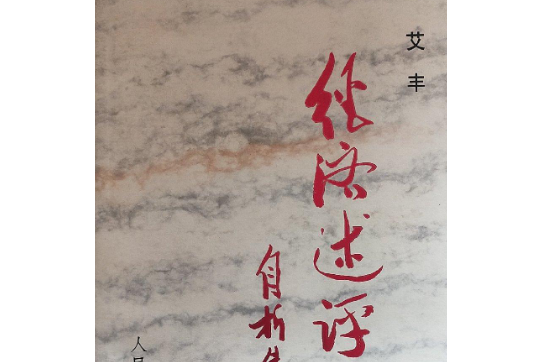 艾丰
经济述评
自析集
人民